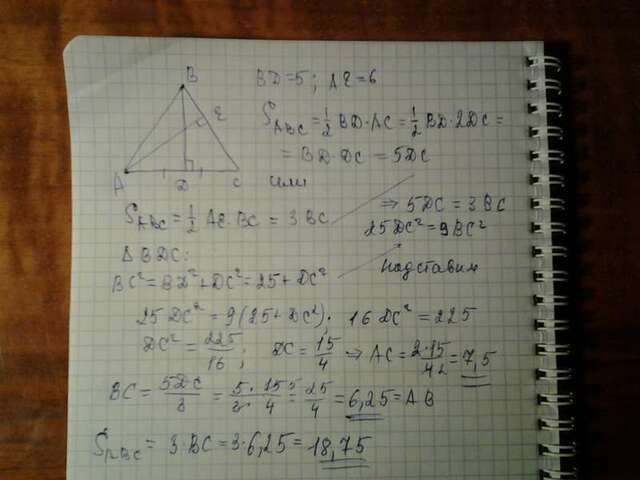 BD=5; AE=6
B
E
A
D
C
S_ABC = 1/2 BD·AC = 1/2 BD·2DC =
= BD·DC = 5DC
или
S_ABC = 1/2 AE·BC = 3BC
⇒ 5DC = 3BC
25DC² = 9BC²
△BDC:
BC² = BD² + DC² = 25 + DC²
подставим
25DC² = 9(25 + DC²); 16DC² = 225
DC² = 225/16; DC = 15/4 ⇒ AC = 2·15/4 2 = 7,5
BC = 5DC/3 = 5·15 5/3·4 = 25/4 = 6,25 = AB
S_ABC = 3·BC = 3·6,25 = 18,75